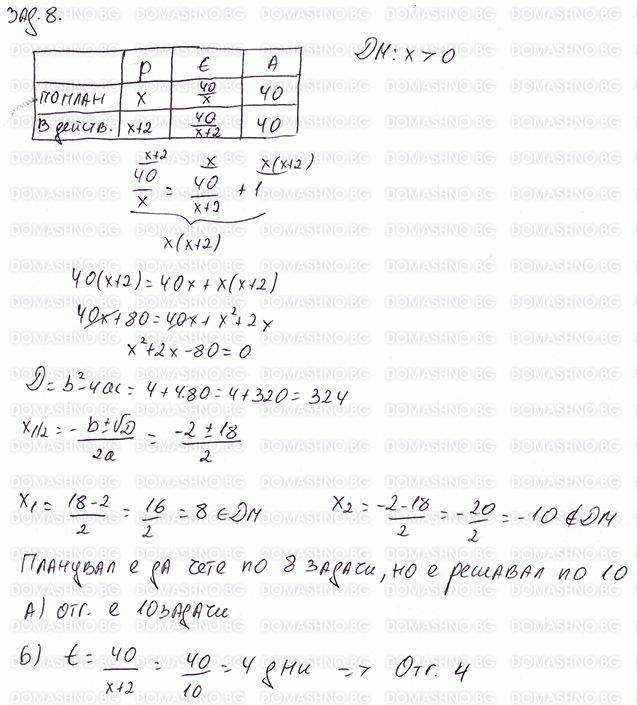 ЗАД. 8.
P t A ДМ: x > 0
ПО ПЛАН x 40/x 40
В действ. x+2 40/(x+2) 40
x+2 x x(x+2)
40/x = 40/(x+2) + 1
x(x+2)
40(x+2) = 40x + x(x+2)
40x + 80 = 40x + x² + 2x
x² + 2x - 80 = 0
D = b² - 4ac = 4 + 4.80 = 4 + 320 = 324
x1/2 = -b±√D/2a = (-2 ± 18)/2
x₁ = (18-2)/2 = 16/2 = 8 ∈ ДМ x₂ = (-2-18)/2 = -20/2 = -10 ∉ ДМ
ПЛАНУВАЛ Е ДА ЧЕТЕ ПО 8 ЗАДАЧИ, НО Е РЕШАВАЛ ПО 10
А) ОТГ. Е 10 ЗАДАЧИ
б) t = 40/(x+2) = 40/10 = 4 дни => Отг. 4